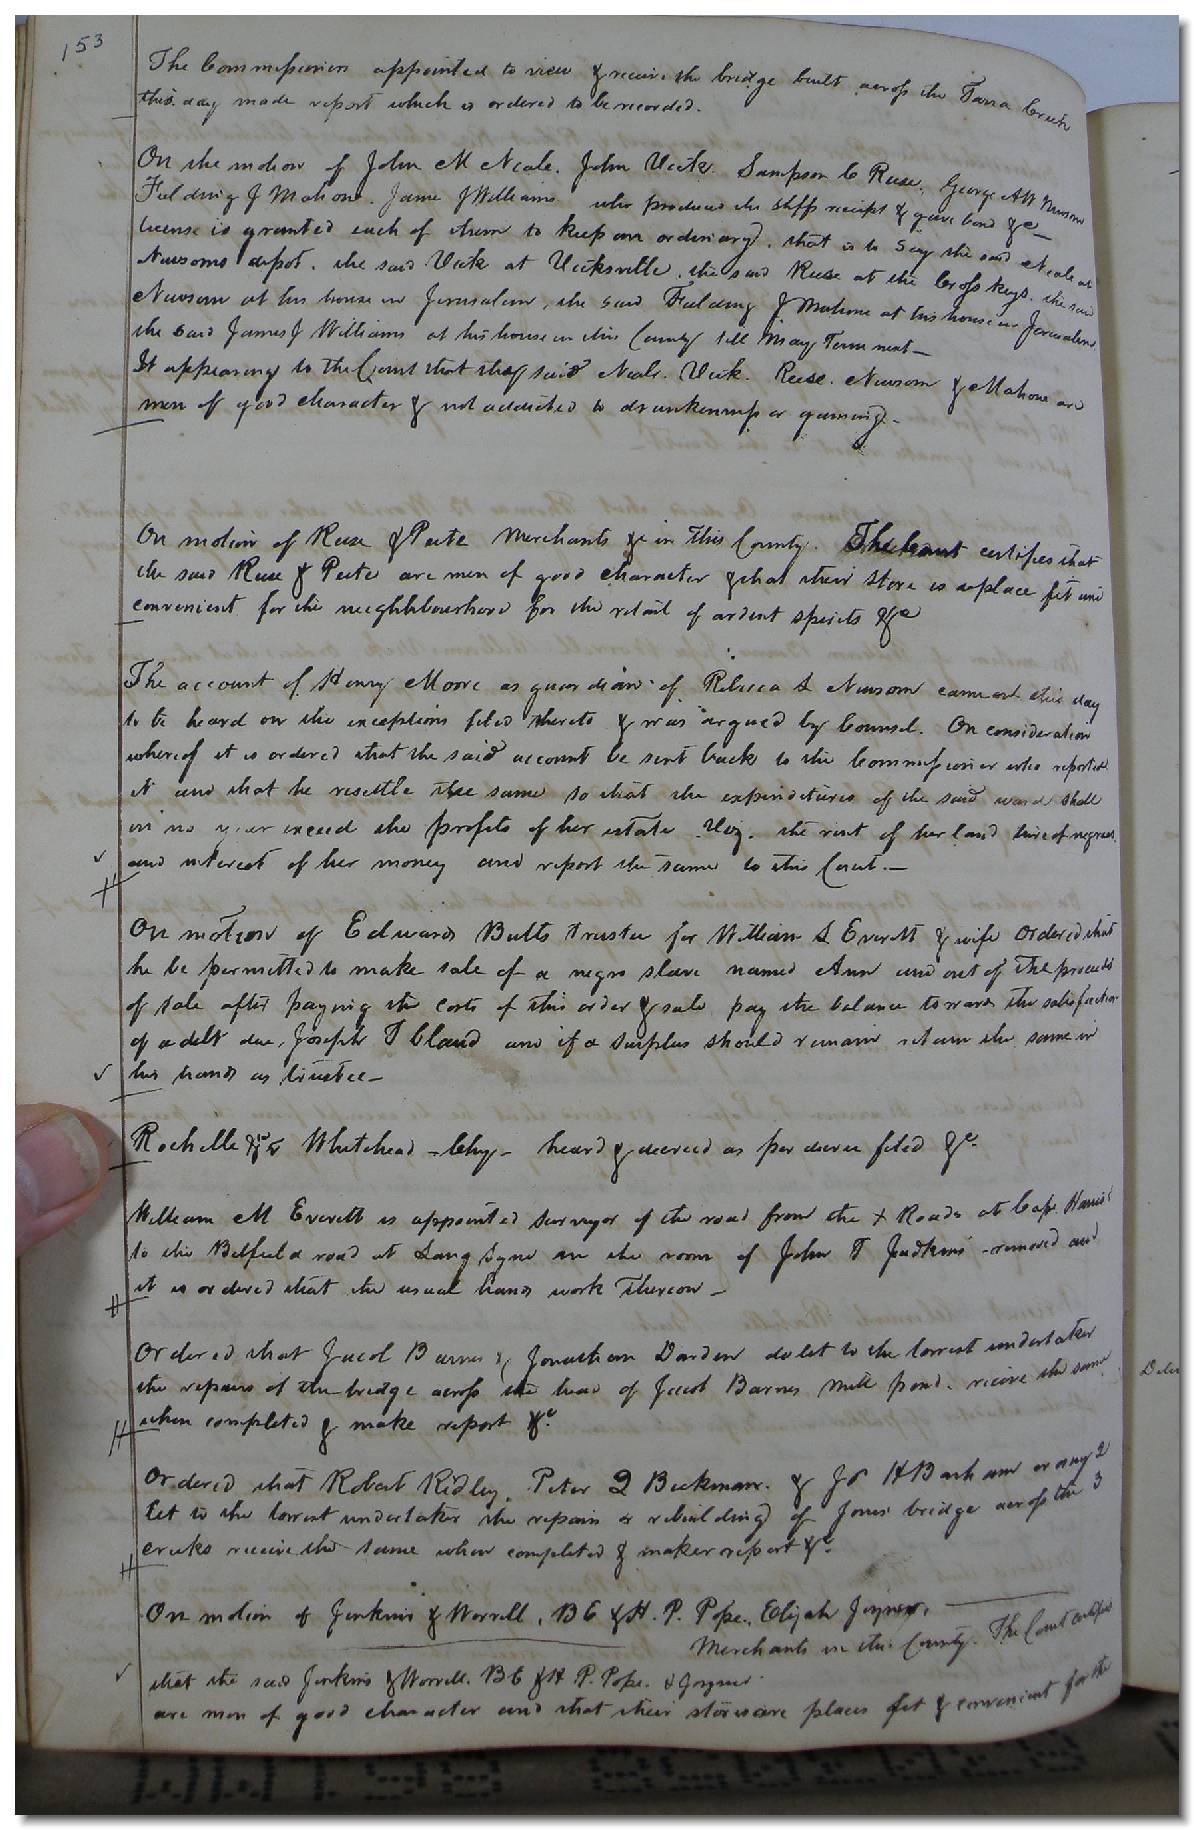 153
The Commissioners appointed to view & receive the bridge built across the Tarra Creek
this day made report which is ordered to be recorded.
On the motion of John M Neale. John Vick. Sampson C Reese. George AW Newsom
Fielding J Mahone. James J Williams who produced the shffs receipt & gave bond &c
license is granted each of them to keep an ordinary. that is to say the said Neale at
Newsoms depot. the said Vick at Vicksville. the said Reese at the Cross keys. the said
Newsom at his house in Jerusalem, the said Fielding J Mahone at his house in Jerusalem.
the said James J Williams at his house in this County till May Term next—
It appearing to the Court that they said Neale. Vick. Reese. Newsom & Mahone are
men of good character & not addicted to drunkenness or gaming.—
On motion of Reese & Peete Merchants &c in this County. The Court certifies that
the said Reese & Peete are men of good character & that their store is a place fit and
convenient for the neighbourhood for the retail of ardent spirits &c
The account of Henry Moore as guardian of Rebecca L Newsom came on this day
to be heard on the exceptions filed thereto & was argued by Counsel. On consideration
whereof it is ordered that the said account be sent back to the Commissioner who reported
it and that he resettle the same so that the expenditures of the said ward shall
in no year exceed the profits of her estate Viz. the rent of her land hire of negroes
and interest of her money and report the same to this Court.—
On motion of Edwards Butts trustee for William L Everett & wife Ordered that
he be permitted to make sale of a negro slave named Ann and out of the proceeds
of sale after paying the costs of this order & sale pay the balance towards the satisfaction
of a debt due Joseph T Claud and if a surplus should remain retain the same in
his hands as trustee—
Rochelle &c vs Whitehead — Chy — heard & decreed as per decree filed &c.
William M Everett is appointed surveyor of the road from the + Roads at Capt Harris
to the Belfield road at Lang Syne in the room of John T Judkins removed and
it is ordered that the usual hands work thereon —
Ordered that Jacob Barnes & Jonathan Darden do let to the lowest undertaker
the repairs of the bridge across the head of Jacob Barnes mill pond. receive the same
when completed & make report &c.
Ordered that Robert Ridley, Peter Beckman. & H Barham or any 2
let to the lowest undertaker the repairs or rebuilding of Jones bridge across the 3
creeks receive the same when completed & make report &c.
On motion of Jenkins & Worrell, BE & H. P. Pope, Elijah Joyner,
Merchants in this County. The Court certifies
that the said Jenkins & Worrell. BE & H P. Pope. & Joyner
are men of good character and that their stores are places fit & convenient for the